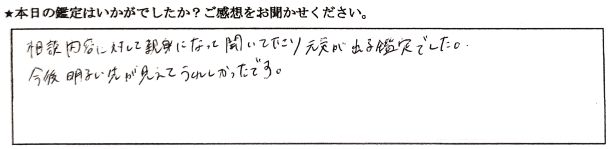 ★本日の鑑定はいかがでしたか？ご感想をお聞かせください。
相談内容に対して親身になって聞いてくださり元気が出る鑑定でした。
今後明るい先が見えてうれしかったです。